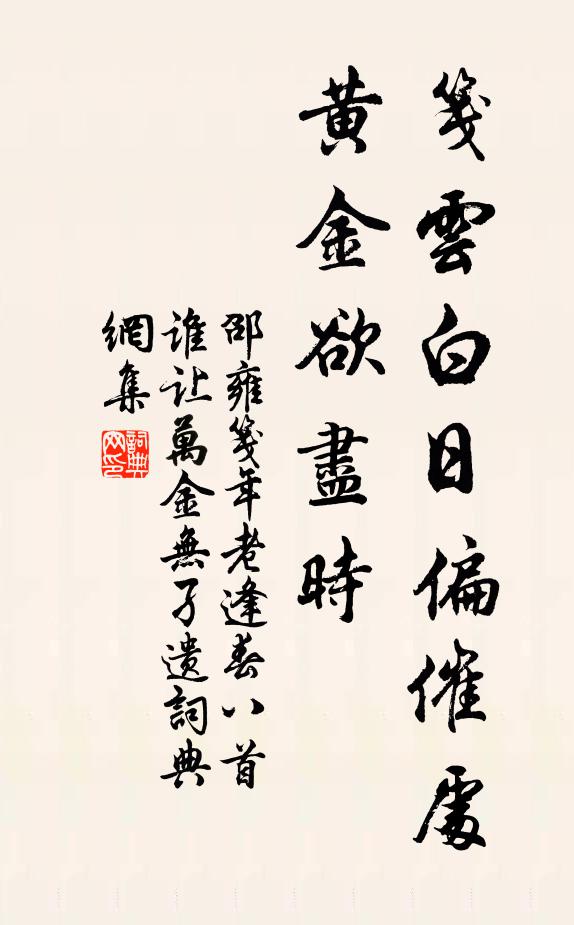 箋雲白日偏催處
黃金欲盡時
邵雍箋年老逢春八首
誰让萬金無孑遺詞典
網集
詞典
网印